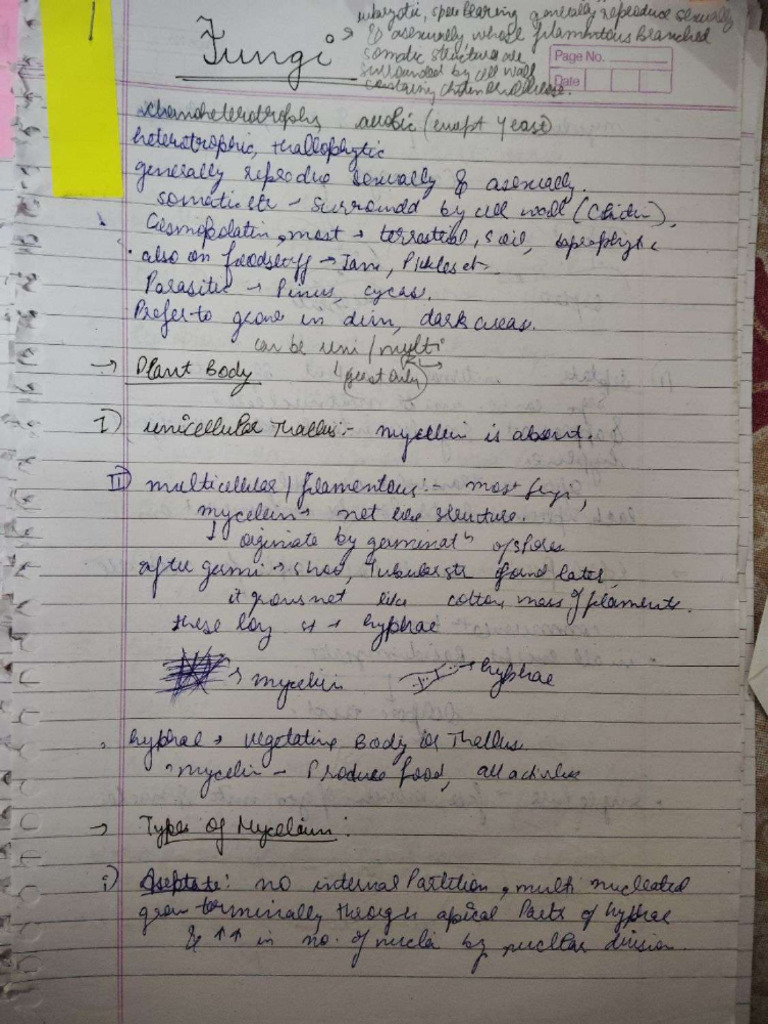 1
Fungi
eukaryotic, spore bearing generally reproduce sexually
& asexually whose filamentous branched
somatic structure are
surrounded by cell wall
containing chitin or cellulose.
Page No.
Date
chemoheterotrophs, aerobic (except yeast)
heterotrophic, thallophytic
generally reprodue sexually & asexually.
somatic str - surroundd by cell wall (Chitin).
Cosmopolatin, most → terrestial, soil, saprophytic
also on foodstuff → Jam, Pickles etc.
Parasitic → Pinus, cycas.
Prefer to grow in dim, dark areas.
can be uni / multi
→ Plant Body
I) unicellular Thallus :- mycelein is absent.
II) multicellular / filamentous :- most fugi,
mycelein → net like structure.
↓ origimate by germinatⁿ of spores
after germi → short, tubular str found later,
it grows net like cotton mass of filaments.
these long st → hyphae
→ mycelin → hyphae
hyphae → vegetative Body or Thallus
mycelin - Produce food,
→ Types of Mycelium :
i) Aseptate : no internal Partition, multi nucleated
grow terminally through apical Parts of hyphae
& ↑↑ in no. of nuclei by nuclear division.